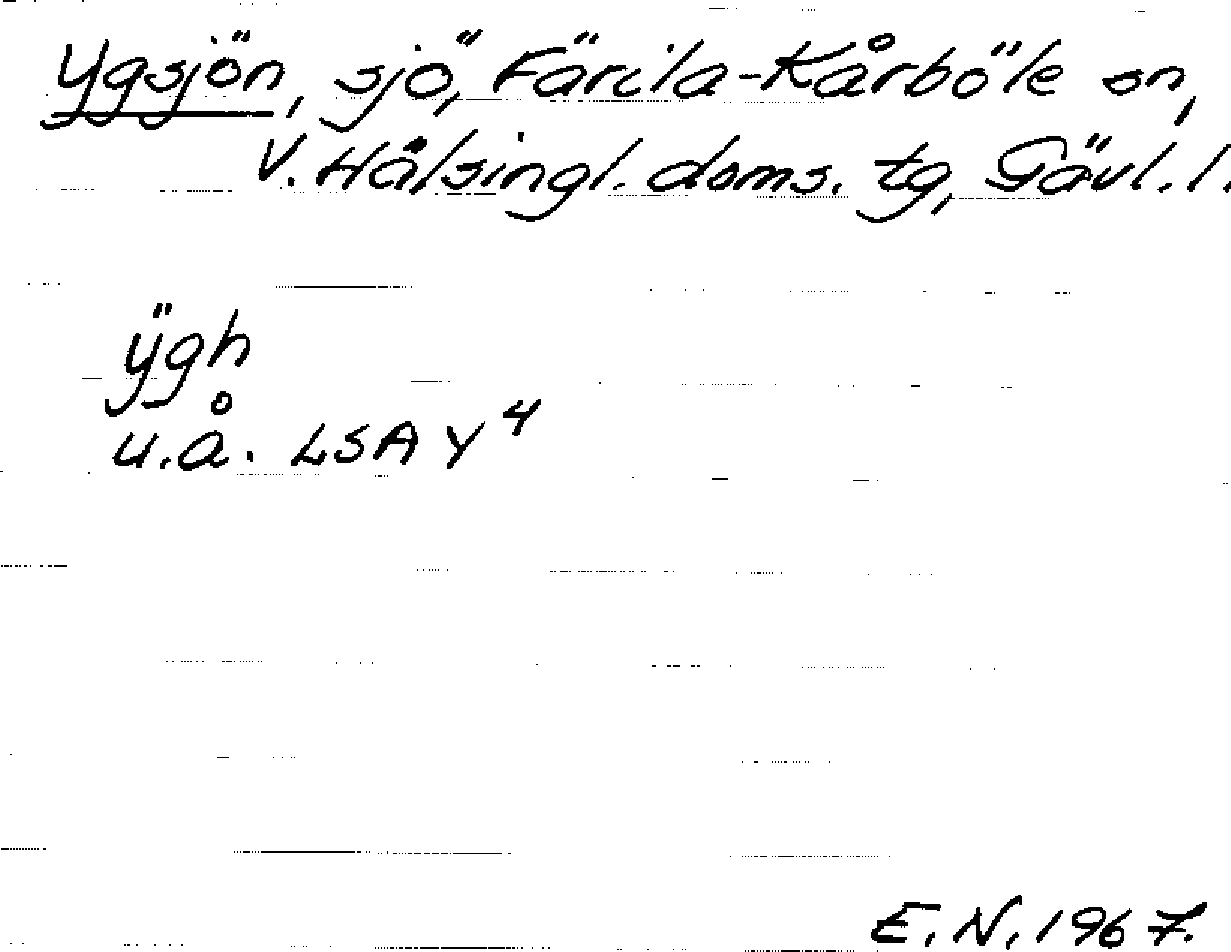 Ygsjön, sjö, Färila-Kårböle sn,
V. Hälsingl. doms. tg, Gävl. l.
ÿgh
u.å. LSA Y4
E. N. 1967.